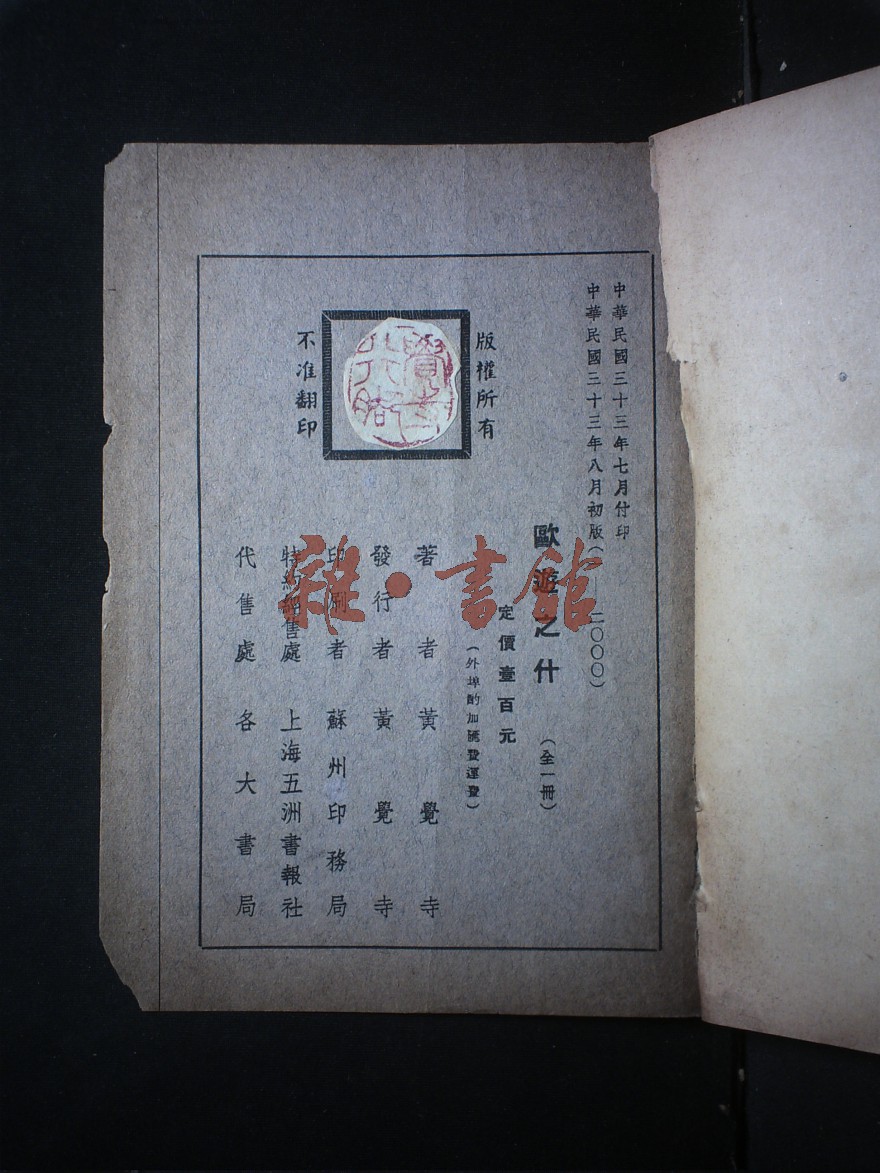 中華民國三十三年七月付印
中華民國三十三年八月初版(二〇〇〇)
歐遊之什(全一冊)
定價壹百元
(外埠酌加匯費運費)
版權所有
不准翻印
著者黃覺寺
發行者黃覺寺
印刷者蘇州印務局
特約經售處上海五洲書報社
代售處各大書局
雜·書館